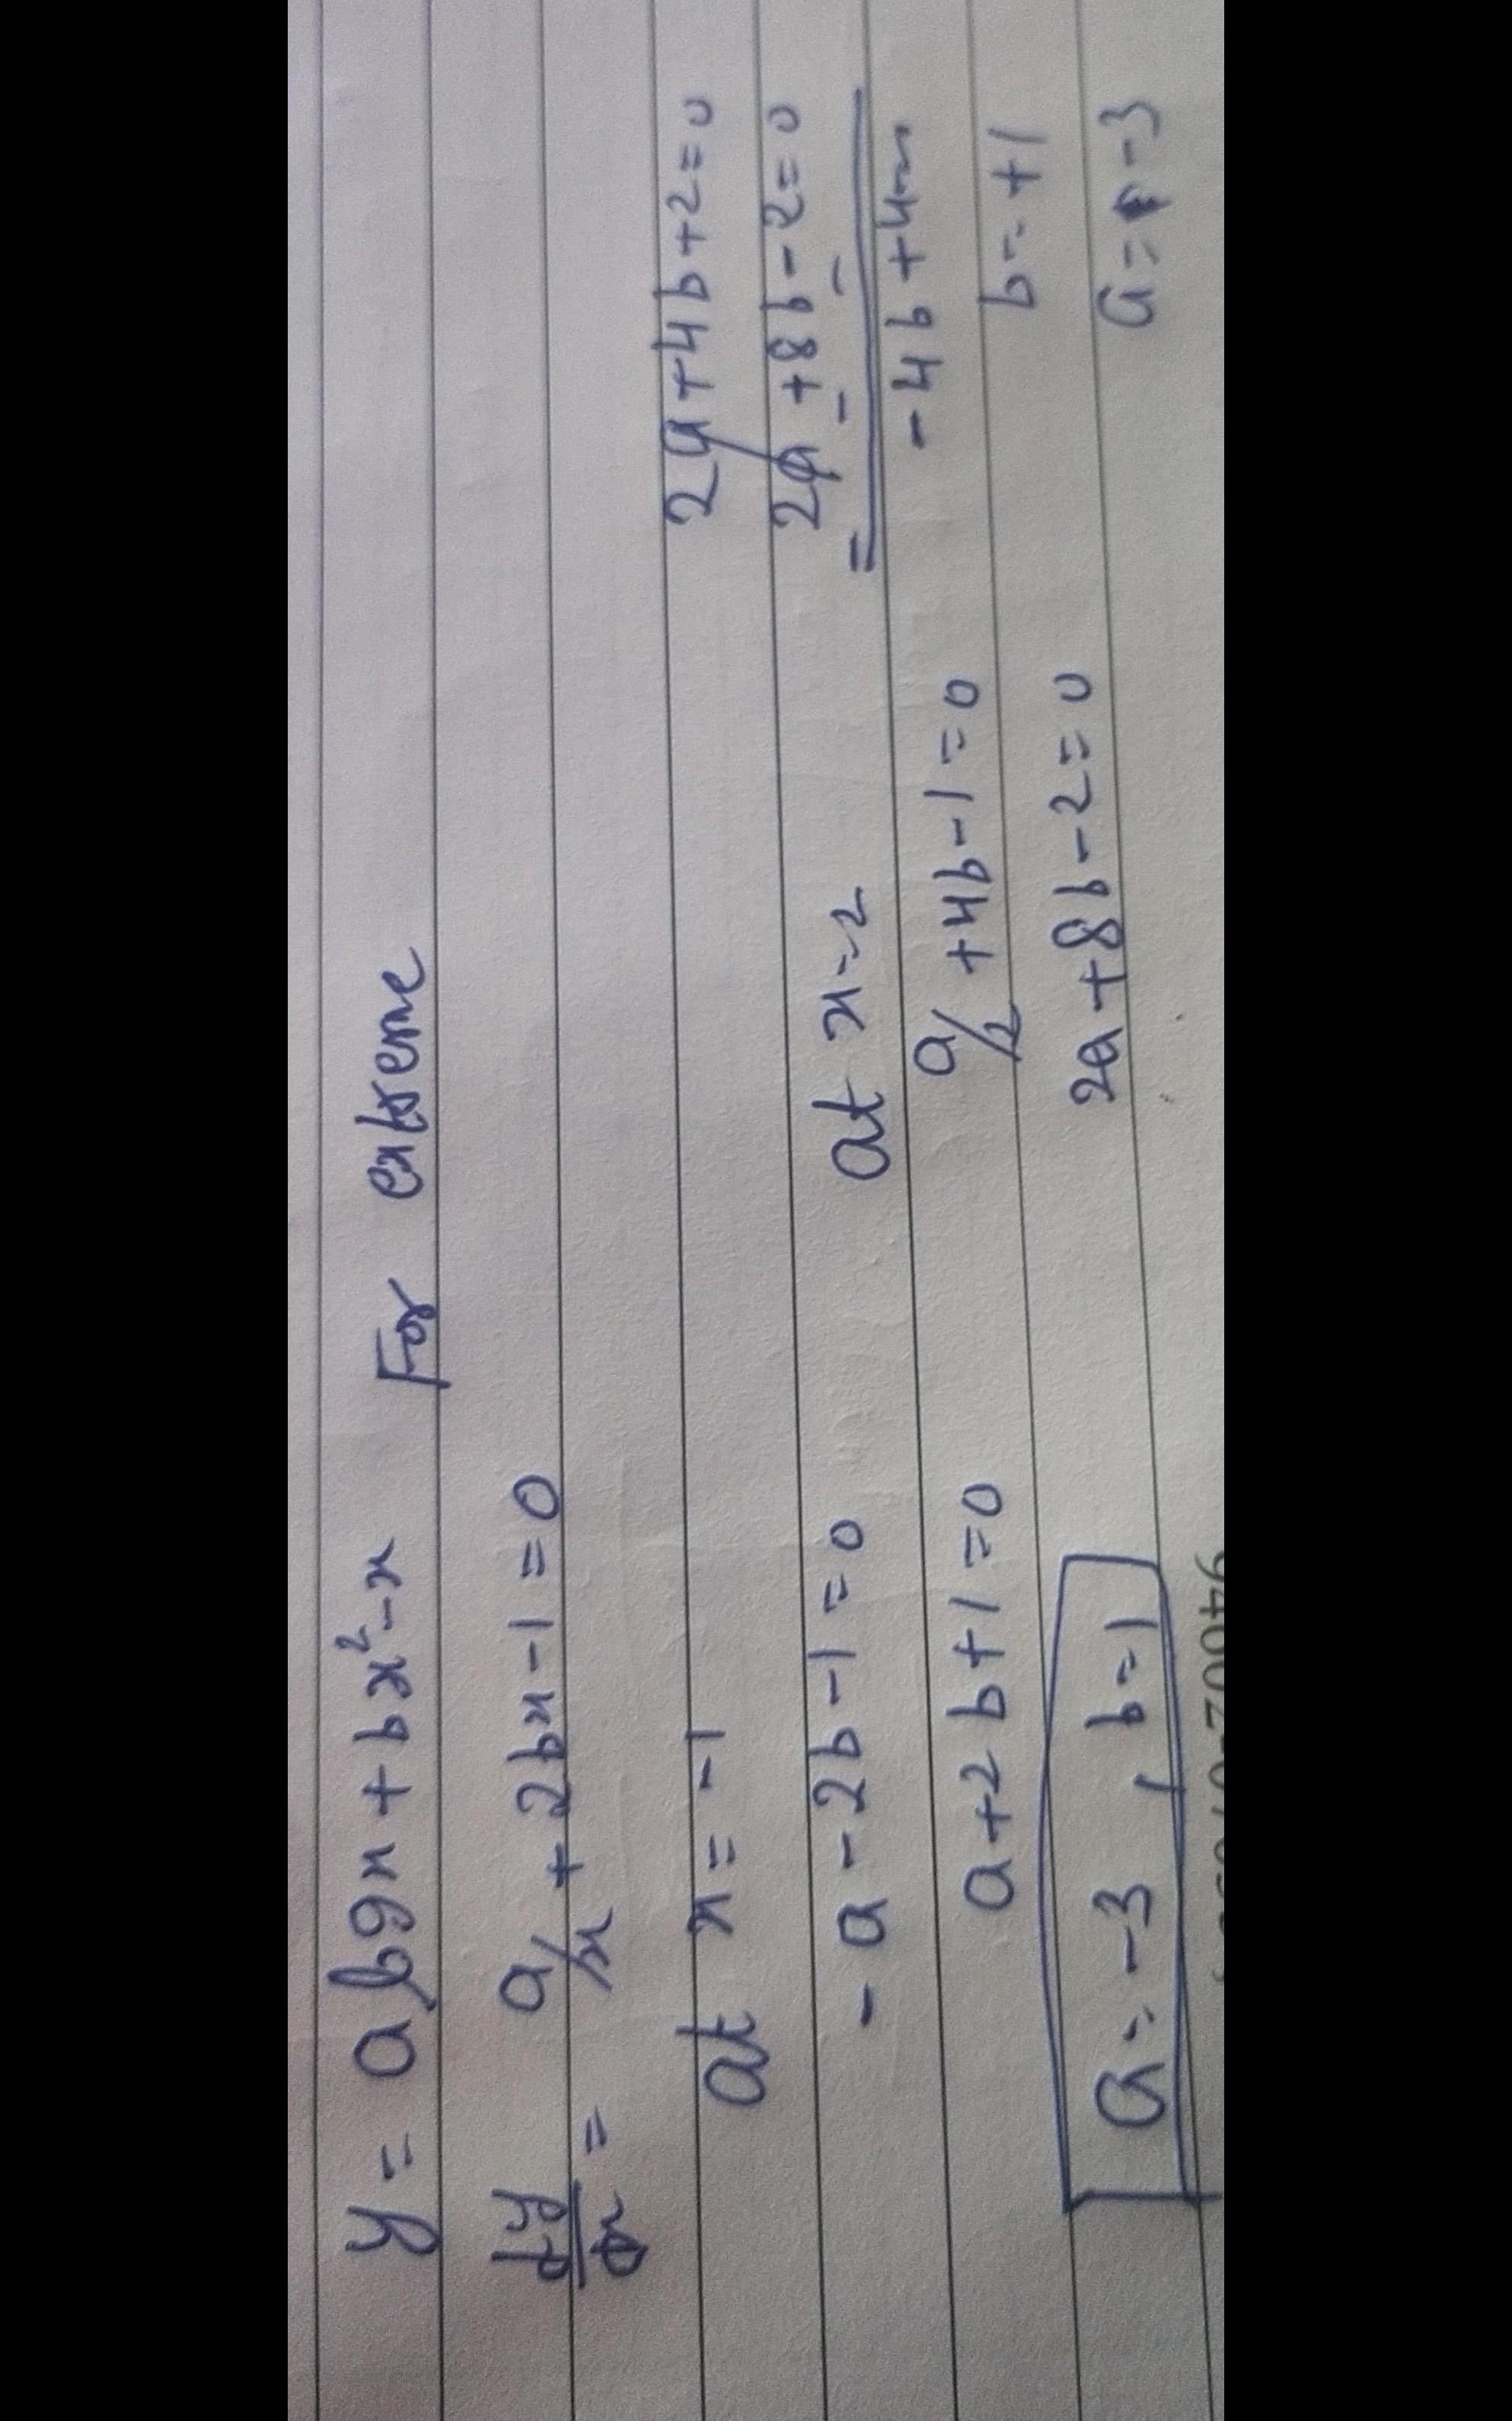 y = a log x + bx² - x For extreme
dy/dx = a/x + 2bx - 1 = 0
at x = -1
- a - 2b - 1 = 0
a + 2b + 1 = 0
a = -3, b = 1
at x = 2
a/2 + 4b - 1 = 0
2a + 8b - 2 = 0
2a + 4b + 2 = 0
2a + 8b - 2 = 0
- - -
-4b + 4
b = +1
a = -3